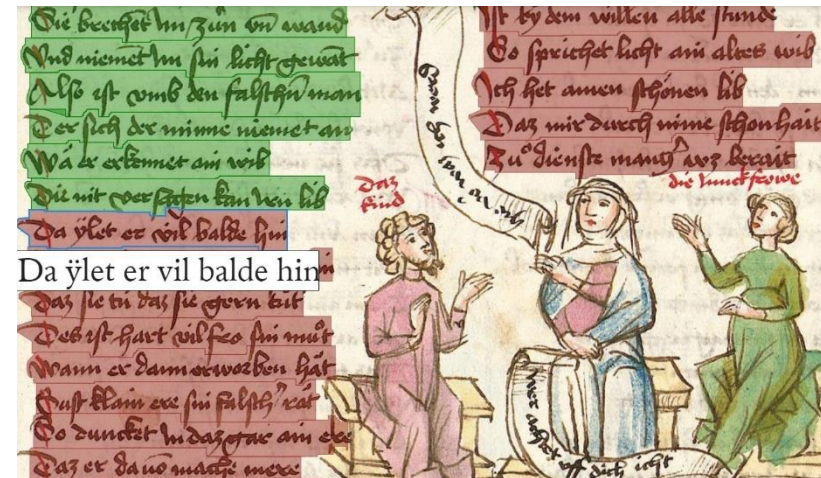 Sie brechet im zün vn̄ wand
Vnd niemet im sin licht gewāt
Also ist vmb den falschn̄ man
Der sich der minne niemet an
Wa er erkennet ain wib
Die nit versagen kan irn lib
Da ÿlet er vil balde hin
Da ÿlet er vil balde hin
Daz sie tü daz sie gern tůt
Des ist hart vil fro sin můt
Wann er dann erworben hät
Sust klain ere sin falsch rat
So duncket in daz gar ain ere
Daz er da vō mache mere
Ist by dem willen alle stunde
So sprichet licht ain altes wib
Ich het ainen schönen lib
Daz mir durch mine schonhait
Zů dienste manch waz berait
daz kind
die iunckfrowe
dich icht